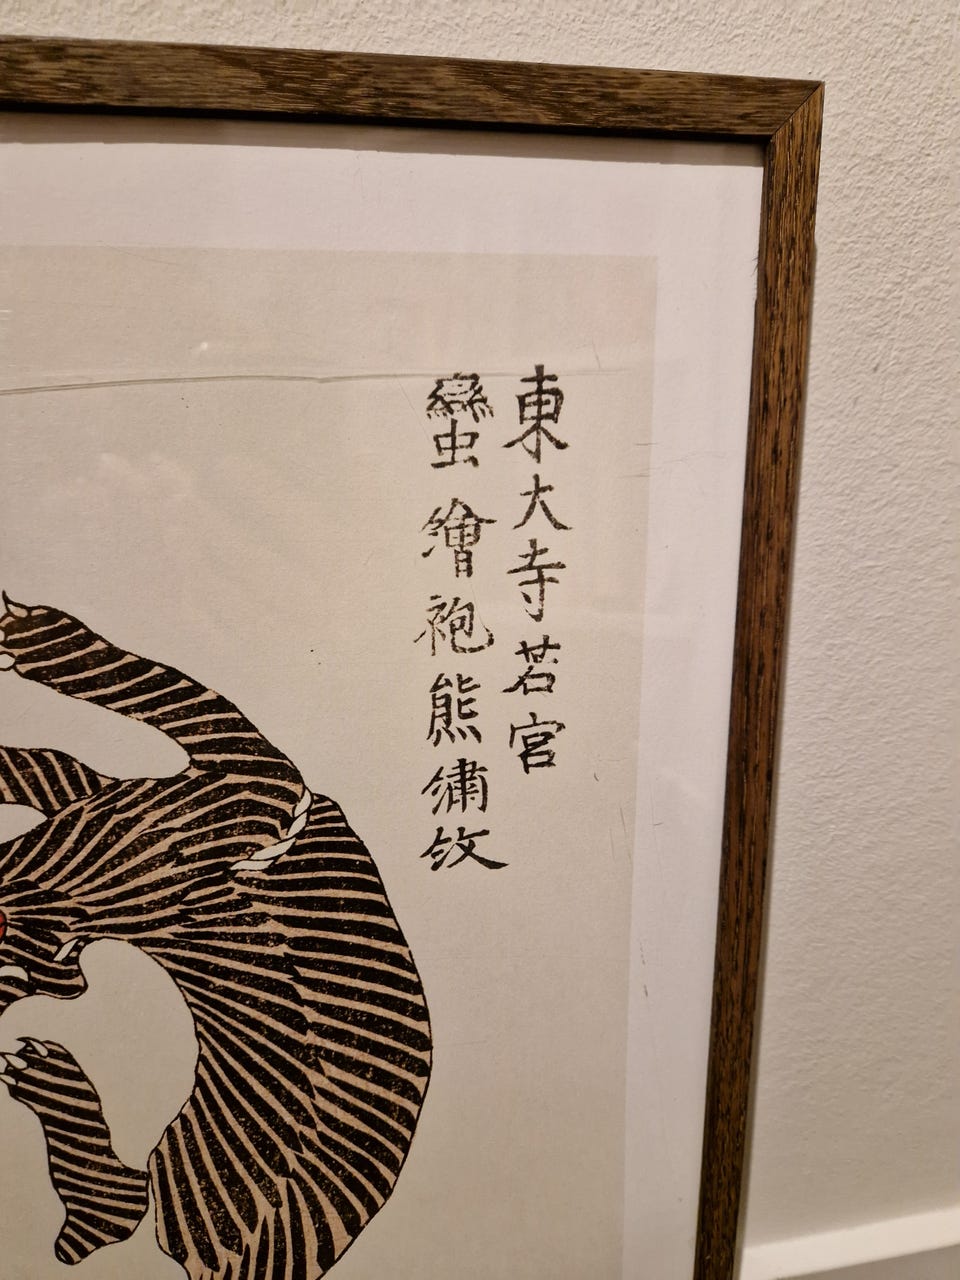 東大寺若宮
蠻繪袍熊繡紋